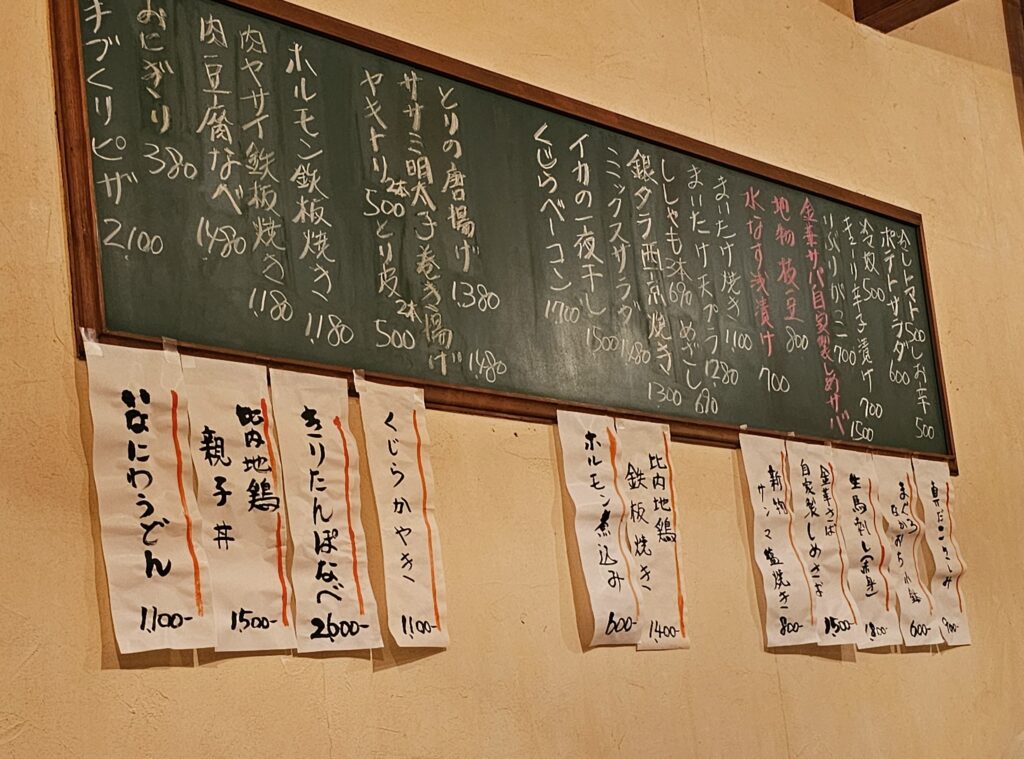 冷しトマト 500
しお辛 500
ポテトサラダ 600
冷奴 500
きゅうり辛子漬け 700
いぶりがっこ 700
金華サバ自家製しめサバ 1500
地物枝豆 800
水なす浅漬け 700
まいたけ焼き 1,100
まいたけ天プラ 1280
ししゃも3本 690
めざし 690
銀ダラ西京焼き 1300
ミックスサラダ 1,480
イカの一夜干し 1500
くじらベーコン 1,700
とりの唐揚げ 1,380
ササミ明太子巻き揚げ 1,480
ヤキトリ 2本 500
とり皮 2本 500
ホルモン鉄板焼き 1,180
肉ヤサイ鉄板焼き 1,180
肉豆腐なべ 1,480
おにぎり 380
手づくりピザ 2,100
真だこさしみ 900-
まぐろ 600-
生馬刺し 1,800-
金華さば
自家製しめさば 1,500-
新物
サンマ塩焼き 800-
比内地鶏
鉄板焼き 1,400-
ホルモン煮込み 600-
くじらかやき 1,100-
きりたんぽなべ 2,600-
比内地鶏
親子丼 1,500-
いなにわうどん 1,100-